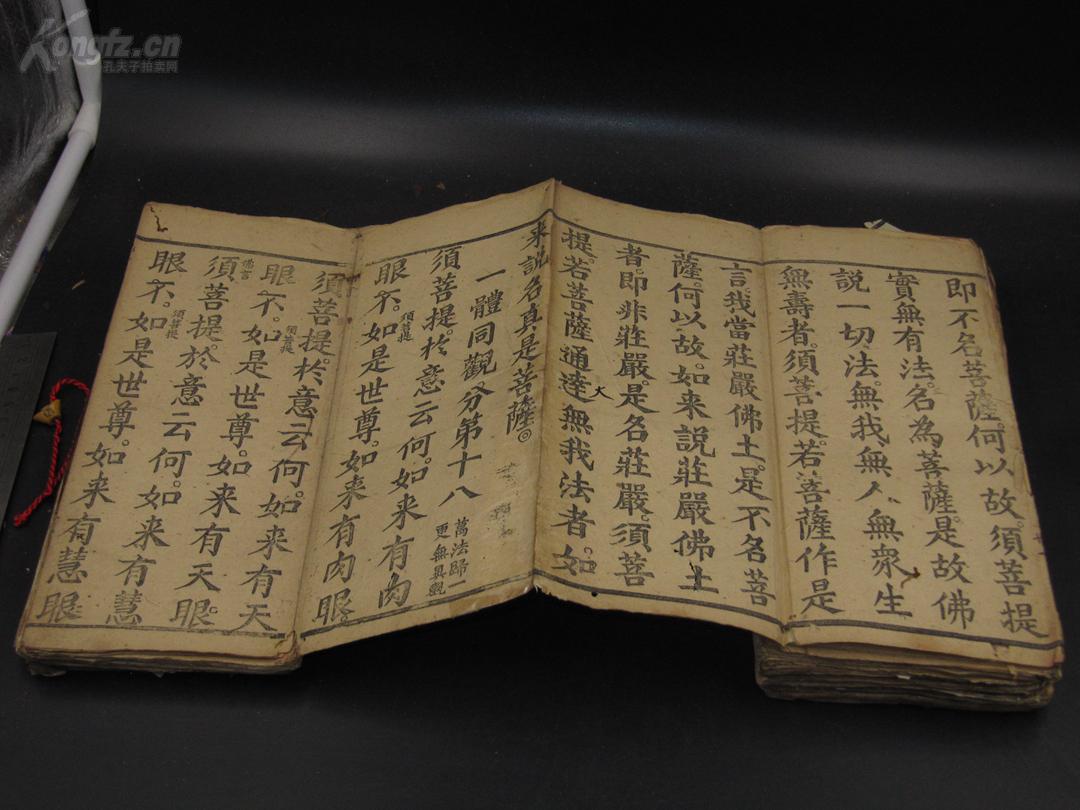 即不名菩薩。何以故。須菩提
實無有法。名為菩薩。是故佛
説一切法。無我無人無衆生
無壽者。須菩提。若菩薩作是
言。我當莊嚴佛土。是不名菩
薩。何以故。如来説莊嚴佛土
者。即非莊嚴。是名莊嚴。須菩
提。若菩薩通達無我法者。如
来説名真是菩薩。
一體同觀分第十八
萬法歸一
更無異觀
須菩提。於意云何。如来有肉
眼不。如是世尊。如来有肉眼。
須菩提
須菩提。於意云何。如来有天
眼不。如是世尊。如来有天眼。
佛言
須菩提
須菩提。於意云何。如来有慧
眼不。如是世尊。如来有慧眼
須菩提
Kongfz.cn
孔夫子拍卖网